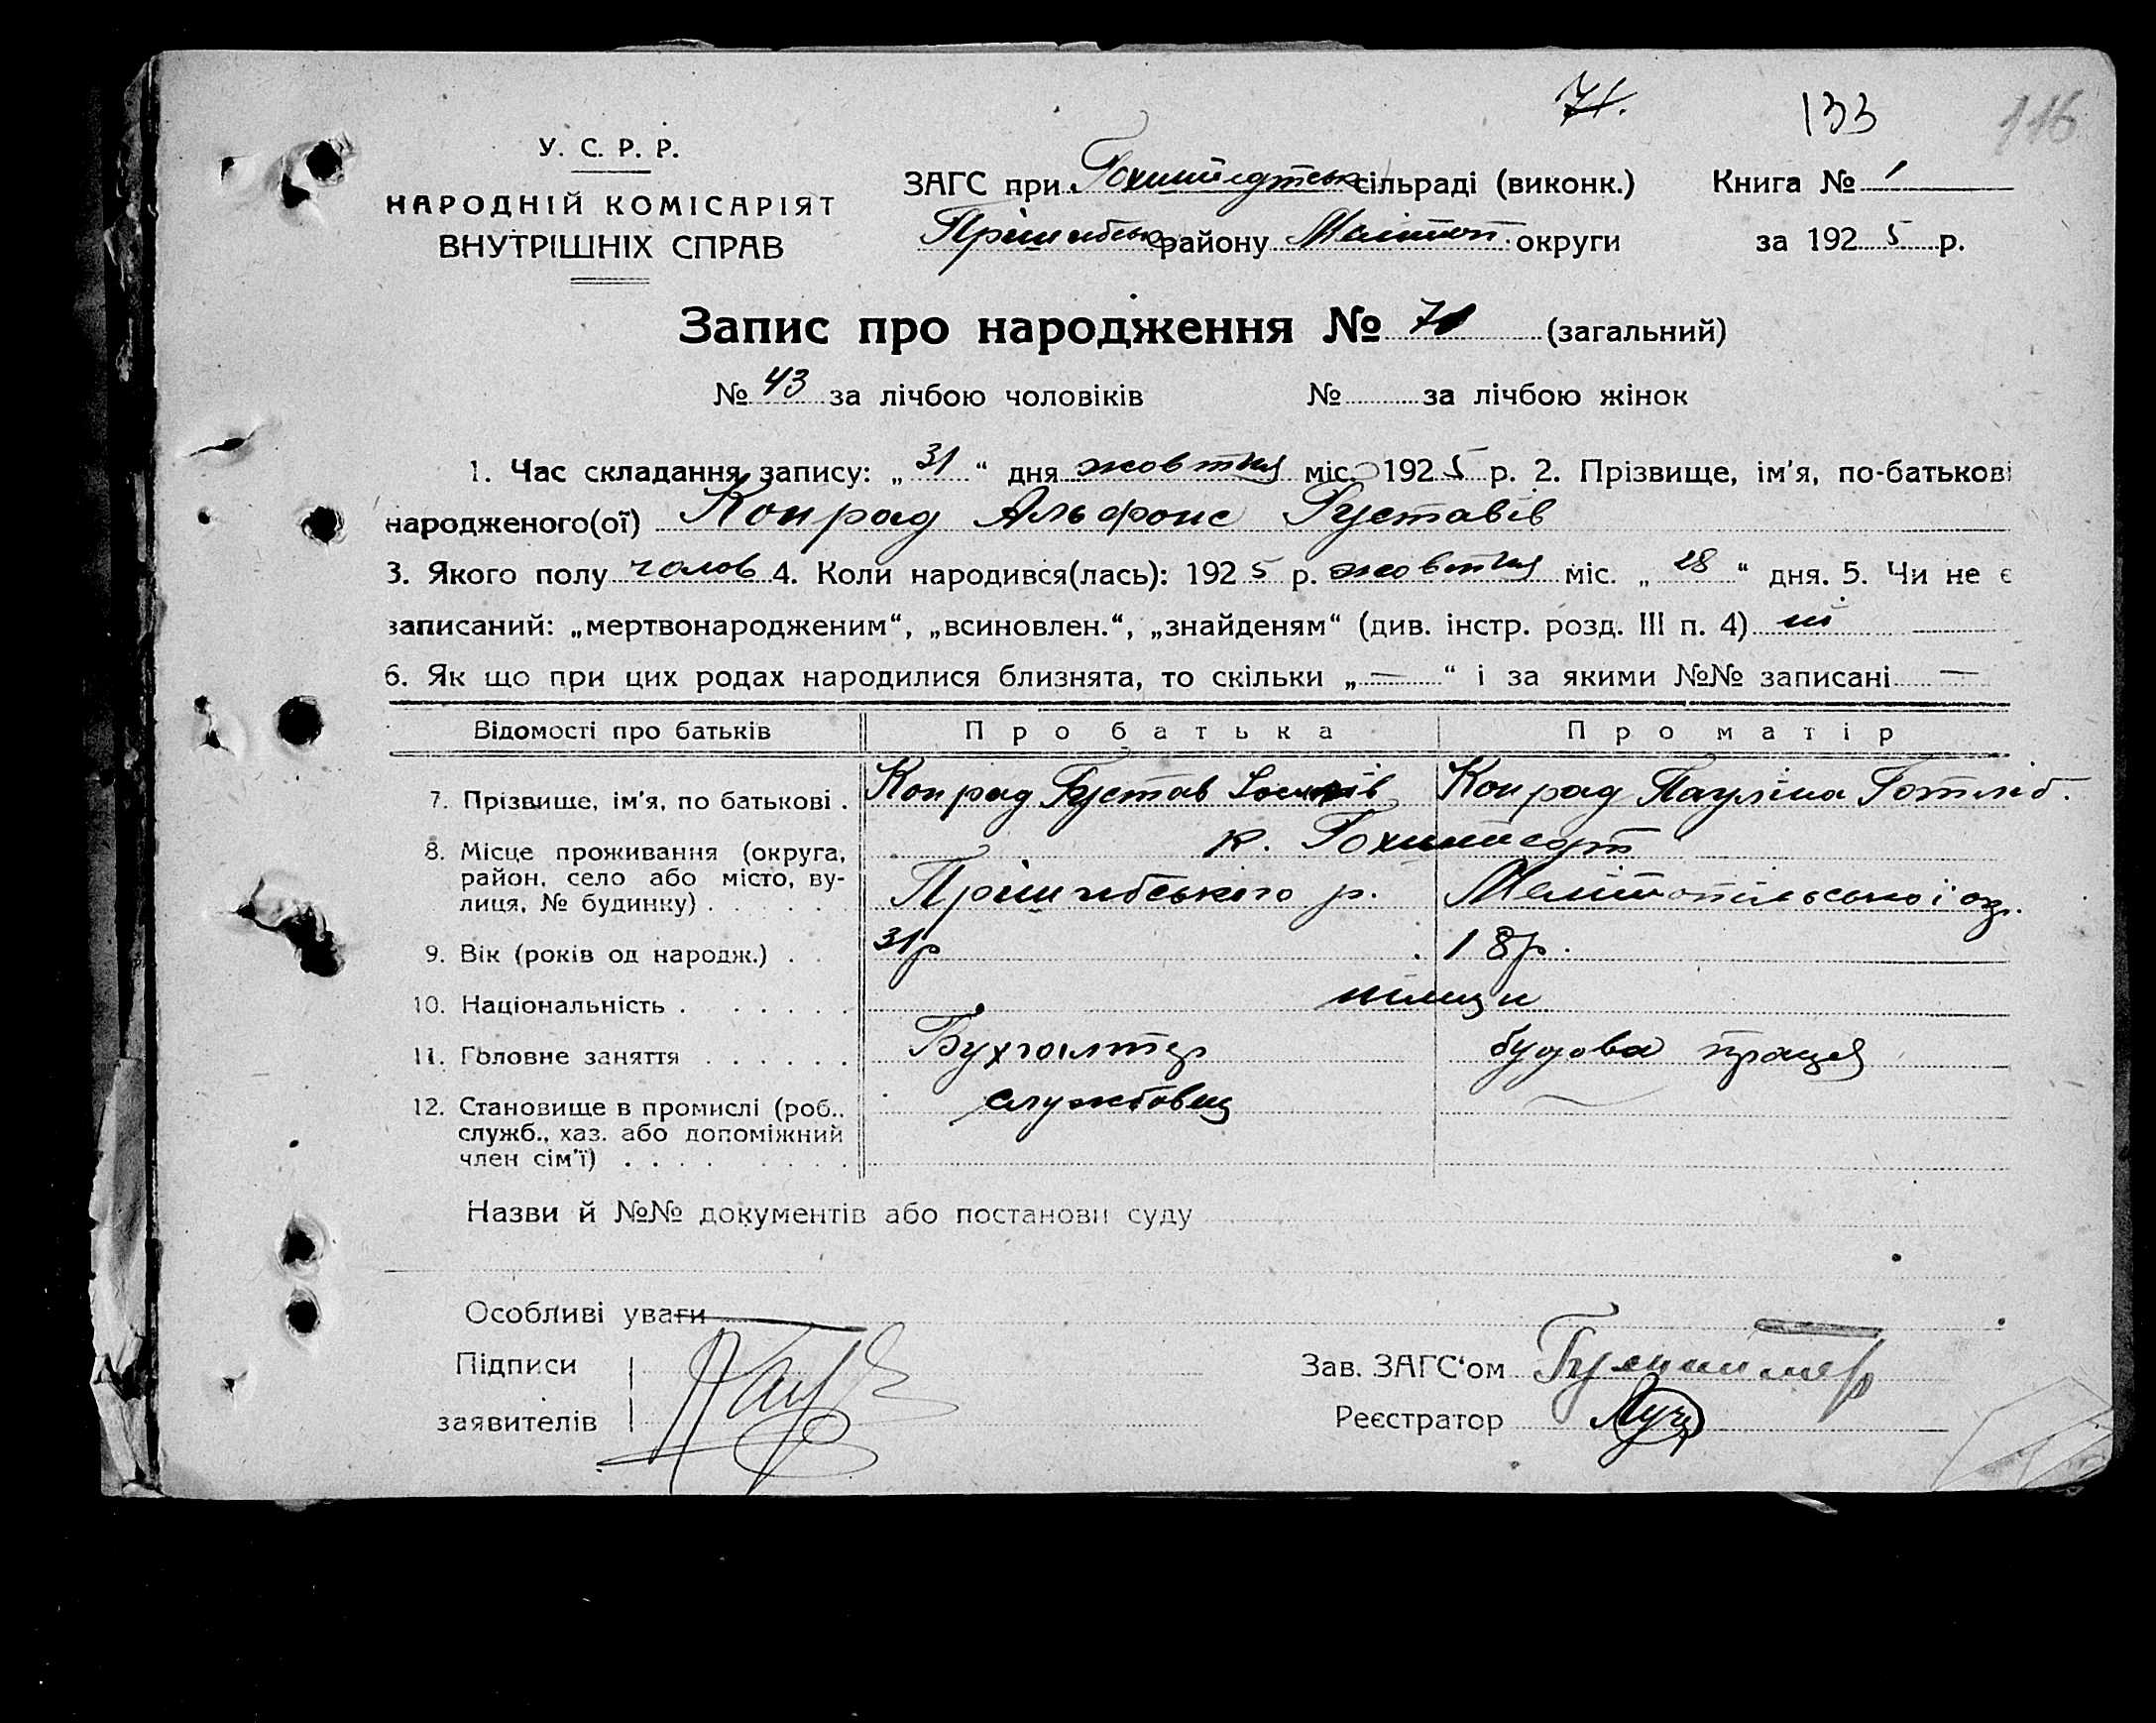 71.
133
116
У. С. Р. Р.
НАРОДНІЙ КОМІСАРІЯТ
ВНУТРІШНІХ СПРАВ
ЗАГС при Гохштедтськ сільраді (виконк.) Книга № 1
Прішибськ району Мелітоп. округи за 1925 р.
Запис про народження № 71 (загальний)
№ 43 за лічбою чоловіків № за лічбою жінок
1. Час складання запису: „31“ дня жовтня міс. 1925 р. 2. Прізвище, ім'я, по-батькові
народженого(ої) Конрад Альфонс Густавів
3. Якого полу чолов 4. Коли народився(лась): 1925 р. жовтня міс. „28“ дня. 5. Чи не є
записаний: „мертвонародженим“, „всиновлен.“, „знайденям“ (див. інстр. розд. III п. 4) ні
6. Як що при цих родах народилися близнята, то скільки „—“ і за якими №№ записані —
Відомості про батьків Про батька Про матір
7. Прізвище, ім'я, по батькові . Конрад Густав Конрад Пауліна Готліб.
8. Місце проживання (округа, район, село або місто, вулиця, № будинку) к. Гохштедт
Прішибського р. Мелітопільської ок.
9. Вік (років од народж.) . . 31р 18р.
10. Національність . німці
11. Головне заняття Бухгалтер будова праця
12. Становище в промислі (роб., служб., хаз. або допоміжний член сім'ї) службовец
Назви й №№ документів або постанови суду
Особливі уваги
Підписи
заявителів
Зав. ЗАГС'ом
Реєстратор